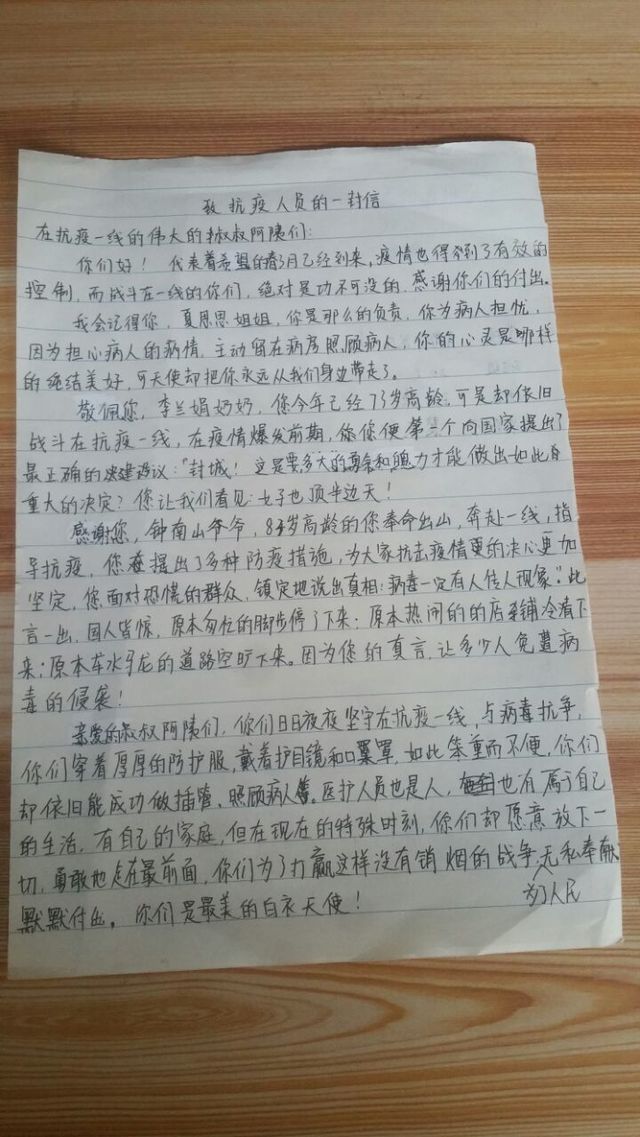 致抗疫人员的一封信
在抗疫一线的伟大的叔叔阿姨们:
你们好! 代表着希望的春3月已经到来,疫情也得到了有效的
控制,而战斗在一线的你们,绝对是功不可没的,感谢你们的付出。
我会记得你,夏思思姐姐,你是那么的负责,你为病人担忧,
因为担心病人的病情,主动留在病房照顾病人,你的心灵是那样
的纯结美好,可天使却把你永远从我们身边带走了。
敬佩您,李兰娟奶奶,您今年已经73岁高龄,可是却依旧
战斗在抗疫一线,在疫情爆发前期,您便第一个向国家提出了
最正确的建议:"封城! 这是要多大的勇余和魄力才能做出如此
重大的决定?您让我们看见:女子也顶半边天!
感谢您,钟南山爷爷,84岁高龄的您奉命出山,奔赴一线,指
导抗疫,您提出了多种防疫措施,为大家抗击疫情的决心更加
坚定,您面对恐慌的群众,镇定地说出真相:病毒一定有人传人现象"。此
言一出,国人皆惊,原本匆忙的脚步停了下来;原本热闹的的店铺冷清下
来;原本车水马龙的道路空旷下来。因为您的真言,让多少人免遭病
毒的侵袭!
亲爱的叔叔阿姨们,你们日日夜夜坚守在抗疫一线,与病毒抗争,
你们穿着厚厚的防护服,戴着护目镜和口罩,如此笨重而不便,你们
却依旧能成功做插管、照顾病人。医护人员也是人,也有属于自己
的生活,有自己的家庭,但在现在的特殊时刻,你们却愿意放下一
切,勇敢地走在最前面,你们为了打赢这样没有销烟的战争,无私奉献
为了人民
默默付出。你们是最美的白衣天使!